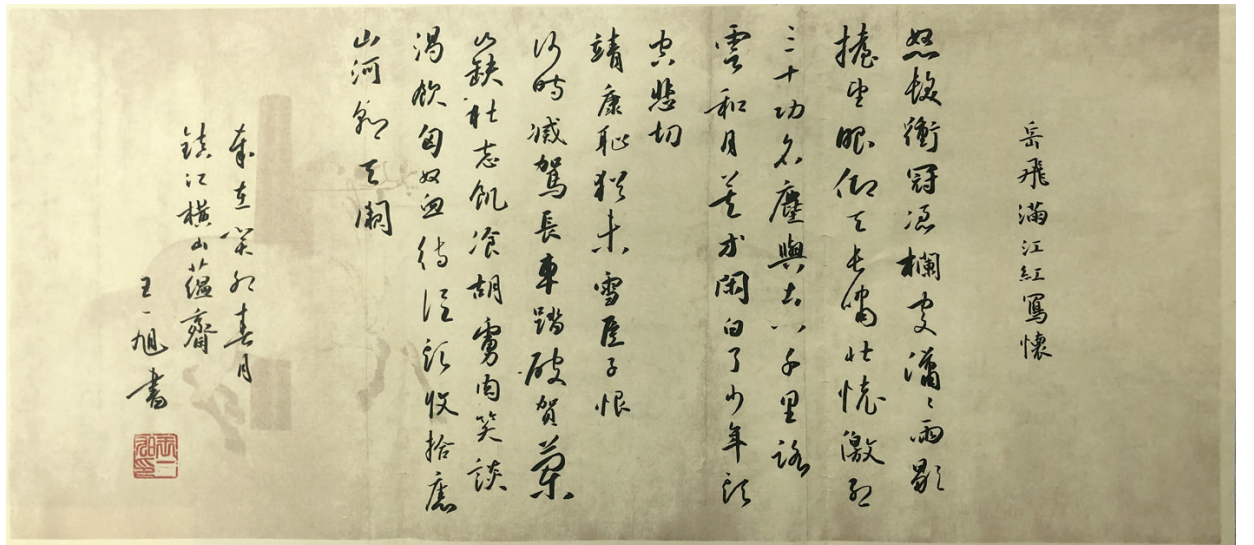 岳飛滿江紅寫懷
怒髮衝冠憑欄處瀟〻雨歇
擡望眼仰天長嘯壯懷激烈
三十功名塵與土八千里路
雲和月莫等閑白了少年頭
空悲切
靖康耻猶未雪臣子恨
何時滅駕長車踏破賀蘭
山缺壯志飢飡胡虜肉笑談
渴飲匈奴血待從頭收拾舊
山河朝天闕
歲在癸卯春月
鎮江橫山蘊齋
王一旭書